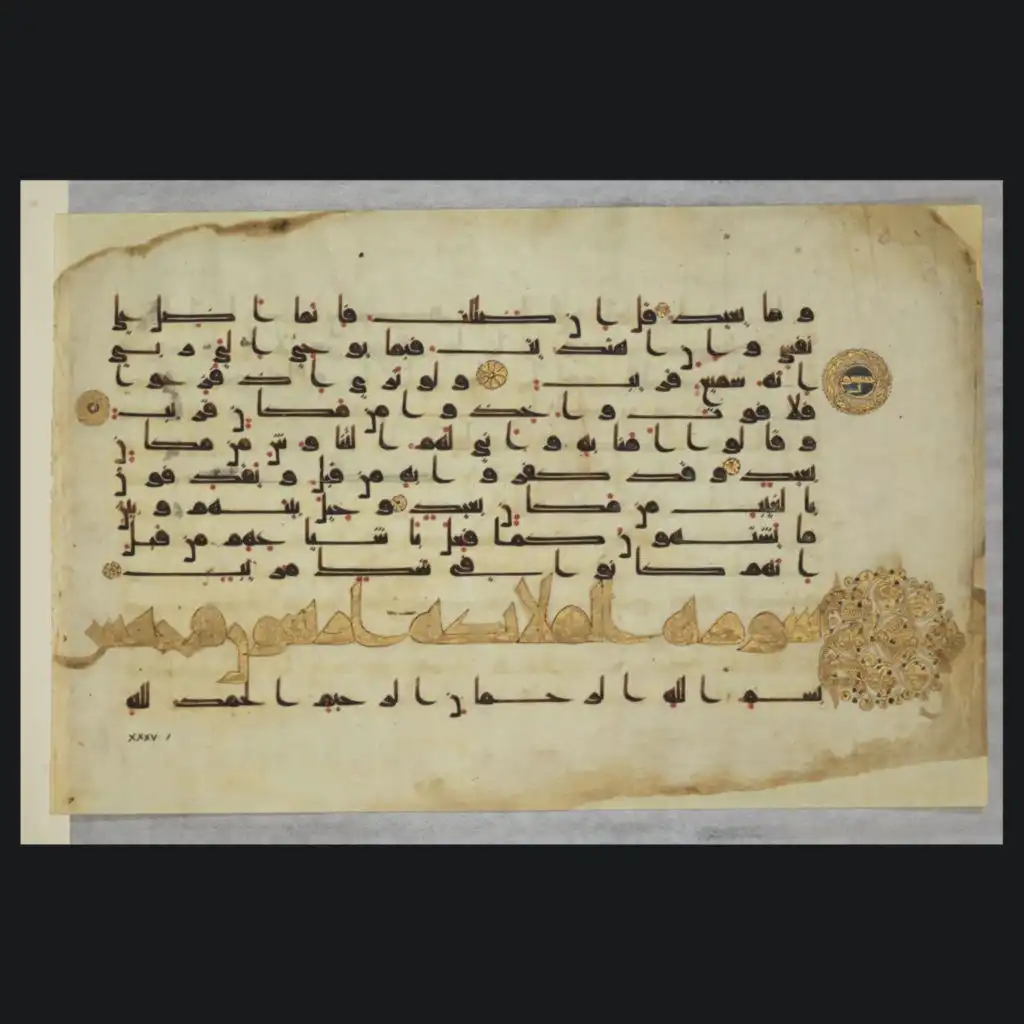 وما يعيد قل ان ضللت فانما اضل على
نفسي وان اهتديت فبما يوحي الي ربي
انه سميع قريب ولو تري اذ فزعوا
فلا فوت واخذوا من مكان قريب
وقالوا امنا به واني لهم التناوش من مكان
بعيد وقد كفروا به من قبل ويقذفون
بالغيب من مكان بعيد وحيل بينهم وبين
ما يشتهون كما فعل باشياعهم من قبل
انهم كانوا في شك مريب
سورة الملائكة اربعون وخمس
بسم الله الرحمن الرحيم الحمد لله
XXXV 1